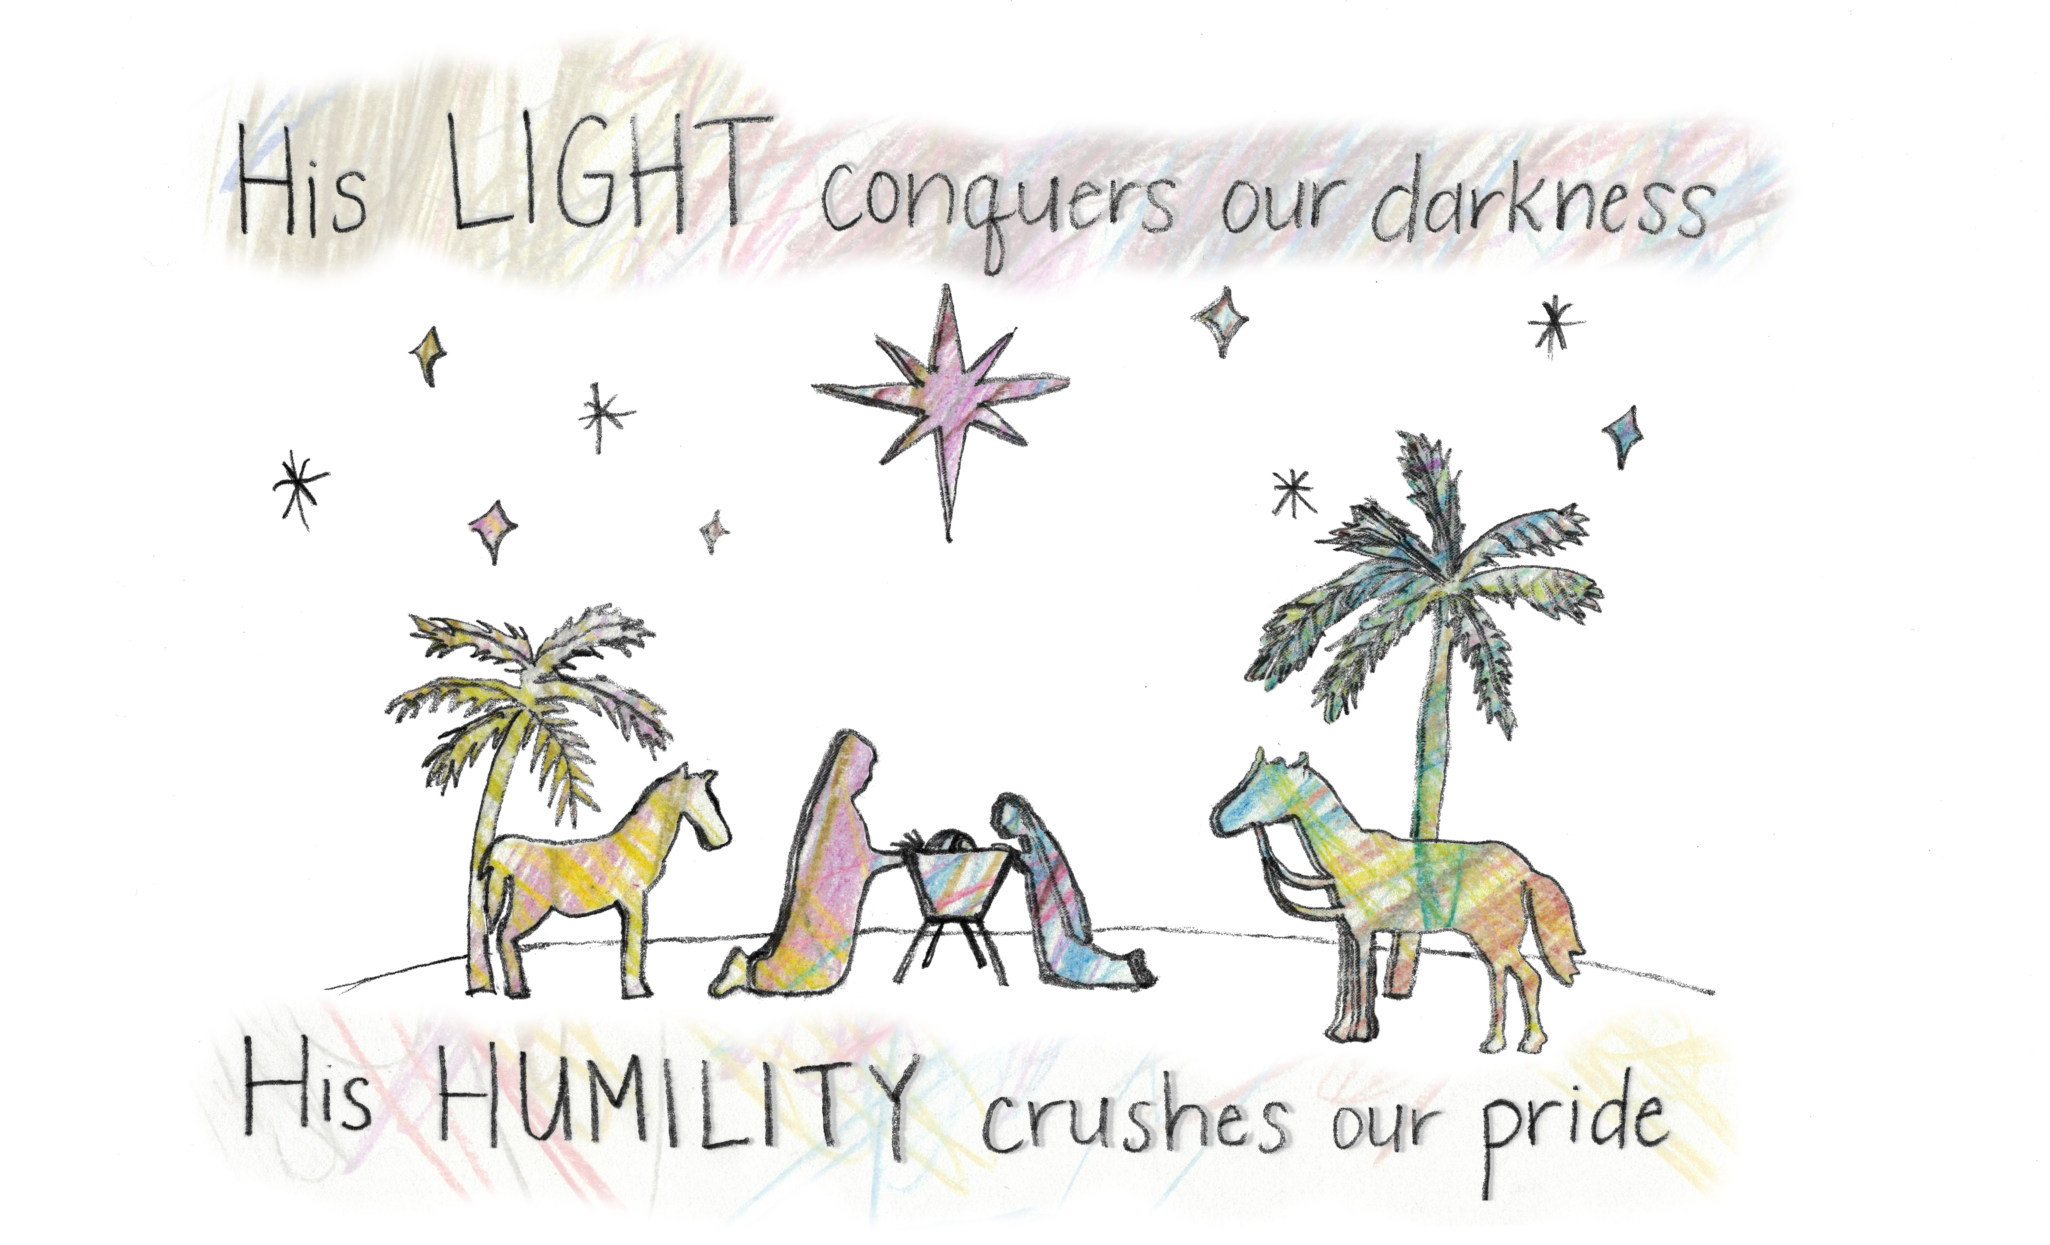 His LIGHT conquers our darkness
His HUMILITY crushes our pride